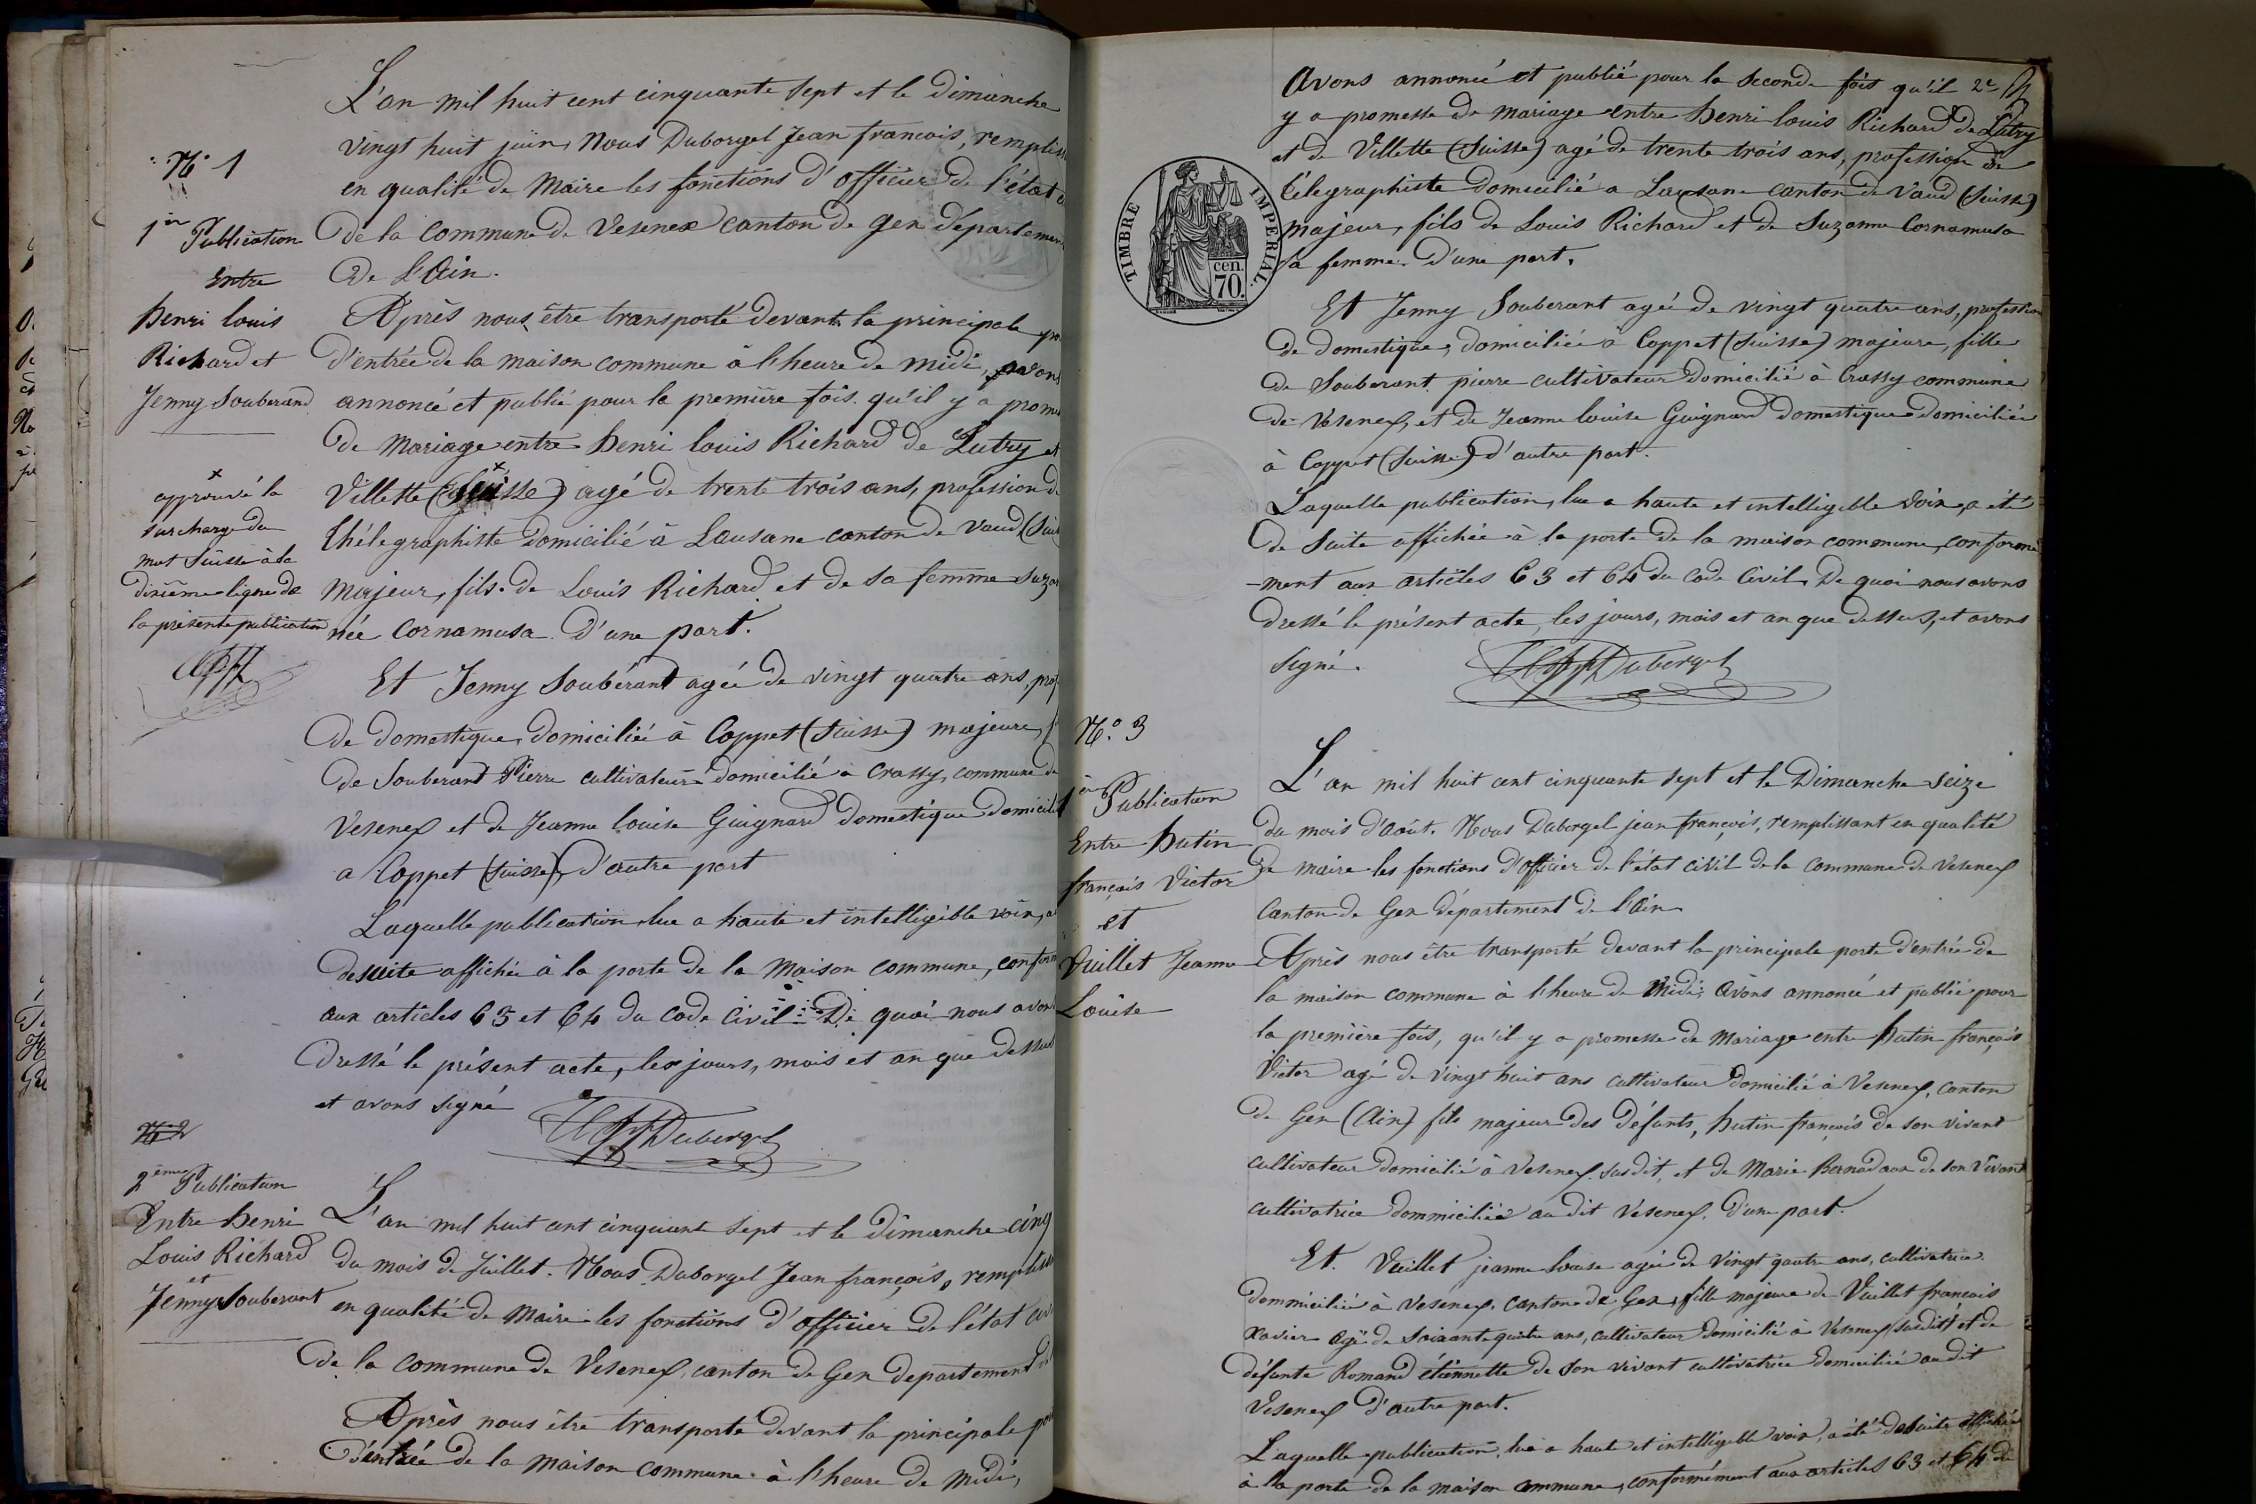 L'an mil huit cent cinquante sept et le dimanche
vingt huit juin, Nous Duborgel Jean francois,
en qualité de Maire les fonctions d'officier de l'état
de la Commune de Vesenex canton de gex département
de l'Ain.
Après nous être transporté devant la principale
d'entrée de la maison commune à l'heure de midi, avons
annoncé et publié pour la première fois qu'il y a
de Mariage entre henri louis Richard de Lutry et
Villette (Suisse) agé de trente trois ans, profession de
thélegraphiste domicilié à Lausane canton de Vaud
Majeur, fils de Louis Richard et de sa femme
née Cornamusa d'une part.
Et Jenny Soubérant agée de vingt quatre ans,
de domestique, domiciliée à Coppet (Suisse) majeure,
de Souberant Pierre cultivateur domicilié à Crassy, commune de
Vesenex et de Jeanne louise Guignard domestique
a Coppet (Suisse), d'autre part
Laquelle publication, lue a haute et intelligible voix, a
desuite affichée à la porte de la maison commune,
aux articles 63 et 64 du code Civil. De quoi nous avons
dressé le présent acte, les jours, mois et an que dessus
et avons signé
Duborgel
N° 1
1re Publication
Entre
henri louis
Richard et
Jenny Souberand
x
approuvé la
surcharge du
mot Suisse à la
dixième ligne de
la présente publication
N° 2
2ème Publication
Entre henri
Louis Richard
et
Jenny Souberant
L'an mil huit cent cinquante sept et le dimanche cinq
du mois de Juillet. Nous Duborgel Jean françois,
en qualité de Maire les fonctions d'officier de l'état
de la commune de Vesenex, canton de Gex departement
Après nous être transporté devant la principale
d'entrée de la maison commune à l'heure de midi,
avons annoncé et publié pour la seconde fois qu'il
y a promesse de mariage entre henri louis Richard de Lutry
et de Villette (Suisse) agé de trente trois ans, profession de
télegraphiste domicilié a Lausane canton de Vaud (Suisse)
majeur, fils de Louis Richard et de Suzanne Cornamusa
sa femme. D'une part.
Et Jenny Souberant agée de vingt quatre ans, profession
de domestique, domiciliée à Coppet (Suisse) majeure, fille
de Souberant pierre cultivateur domicilié à Crassy commune
de Vesenex, et de Jeanne louise Guignard domestique domiciliée
à Coppet (Suisse) d'autre part.
Laquelle publication, lue a haute et intelligible voix, a été
de suite affichée à la porte de la maison commune, conformé
-ment aux articles 63 et 64 du code Civil. De quoi nous avons
dressé le présent acte, les jours, mois et an que dessus, et avons
signé.
Duborgel
TIMBRE IMPERIAL
cen.
70.
2e
N° 3
1re Publication
Entre hutin
françois Victor
et
Vuillet Jeanne
Louise
L'an mil huit cent cinquante sept et le Dimanche seize
du mois d'août. Nous Duborgel jean françois, remplissant en qualité
de maire les fonctions d'officier de l'état civil de la commune de Vesenex
Canton de Gex département de l'Ain
Après nous être transporté devant la principale porte d'entrée de
la maison commune à l'heure de Midi, avons annoncé et publié pour
la première fois, qu'il y a promesse de mariage entre hutin françois
Victor agé de vingt huit ans cultivateur domicilié à Vesenex, canton
de Gex (Ain) fils majeur des défunts, hutin françois de son vivant
cultivateur domicilié à Vesenex susdit, et de Marie de son vivant
cultivatrice dommiciliée au dit Vesenex. d'une part.
Et. Vuillet jeanne louise agée de vingt qautre ans, cultivatrice
dommiciliée à Vesenex, canton de Gex, fille majeure de Vuillet francois
xavier agé de soixante quatre ans, cultivateur domicilié à Vesenex susdit, et de
défunte Romand étiennette de son vivant cultivatrice domiciliée audit
Vesenex d'autre part.
Laquelle publication, lue a haute et intelligible voix, a été desuite affichée
à la porte de la maison commune, conformément aux articles 63 et 64 du